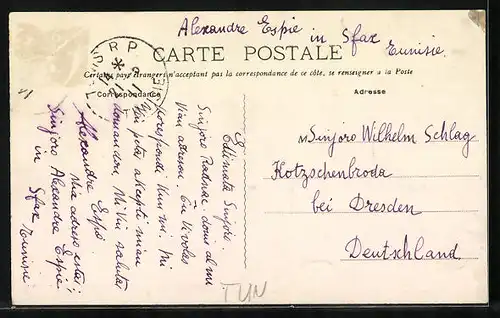 Alexandre Espié in Sfax
Tunisie.
R P
CARTE POSTALE
Certains pays étrangers n'acceptant pas la correspondance de ce côté, se renseigner à la Poste
Correspondance
Adresse
Estimata Sinjoro.
Sinjoro Radnac donis al mi
Vian adreson. Ĉu Vi volas
korespondi kun mi. Mi
Vin petas akcepti mian
demandon. Mi Vin salutas
Alexandre Espié
Mia adreso estas:
Sinjoro Alexandre Espié
in Sfax Tunisie.
Sinjoro Wilhelm Schlag
Kötzschenbroda
bei Dresden
Deutschland
TUN